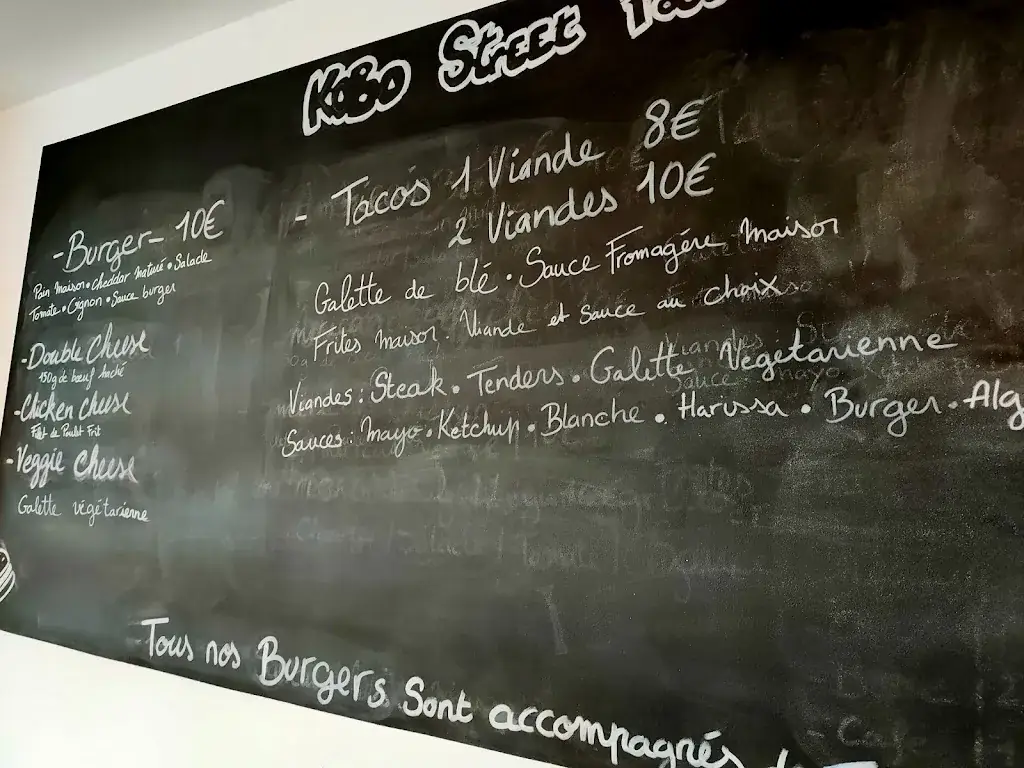 KoBo Street
- Burger - 10€
Pain maison • cheddar maturé • Salade
Tomate • Oignon • Sauce burger
- Double Cheese
150g de bœuf haché
- Chicken Cheese
Filet de Poulet Frit
- Veggie Cheese
Galette végétarienne
- Tacos 1 Viande 8€
2 Viandes 10€
Galette de blé • Sauce Fromagère maison
Frites maison. Viande et Sauce au choix
Viandes : Steak • Tenders • Galette Végétarienne
Sauces : Mayo • Ketchup • Blanche • Harissa • Burger • Alg
Tous nos Burgers Sont accompagnés